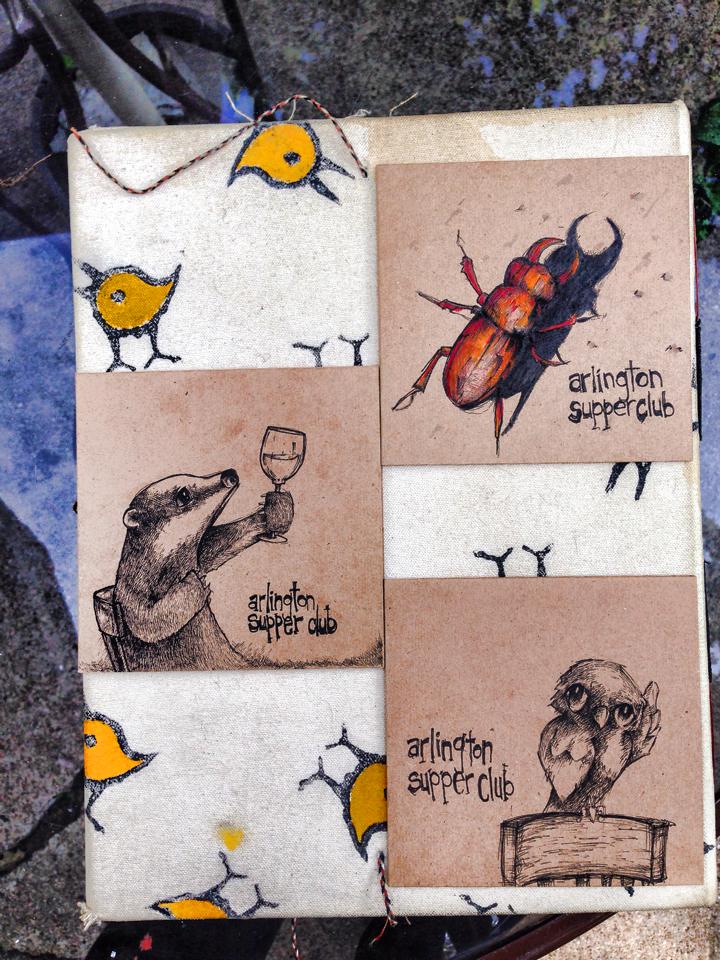 arlington
supper club
arlington
supper club
arlington
supper club